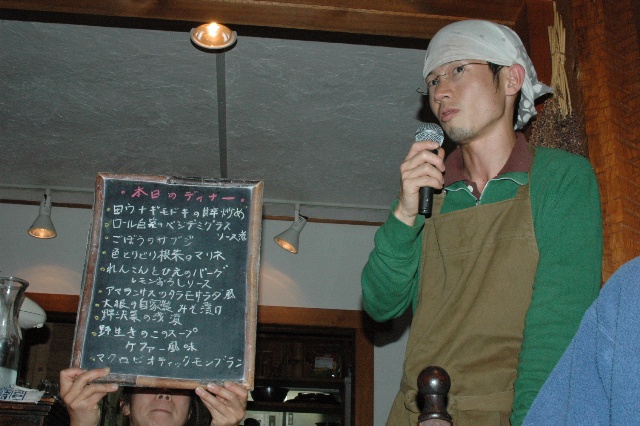 本日のディナー
田ウナギモドキの醤炒め
ロール白菜のベジデミグラス
ソース煮
ごぼうのサブジ
色とりどり根菜のマリネ
れんこんとひえのバーグ
レモンおろしソース
アマランサスのタラモサラダ風
大根の自家製みそ漬け
野沢菜の浅漬
野生きのこのスープ
ケファー風味
マクロビオティックモンブラン